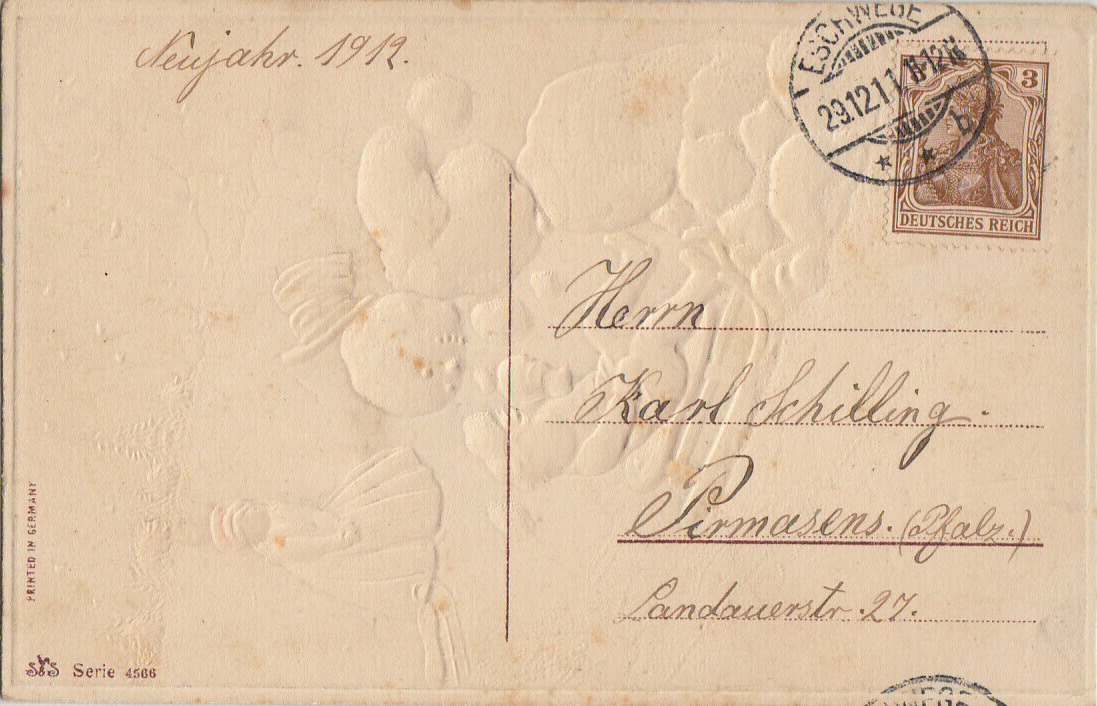 Neujahr. 1912.
ESCHWEGE
29.12.11.11-12N
b
* *
3
DEUTSCHES REICH
Herrn
Karl Schilling.
Pirmasens. (Pfalz.)
Landauerstr. 27.
PRINTED IN GERMANY
Serie 4566